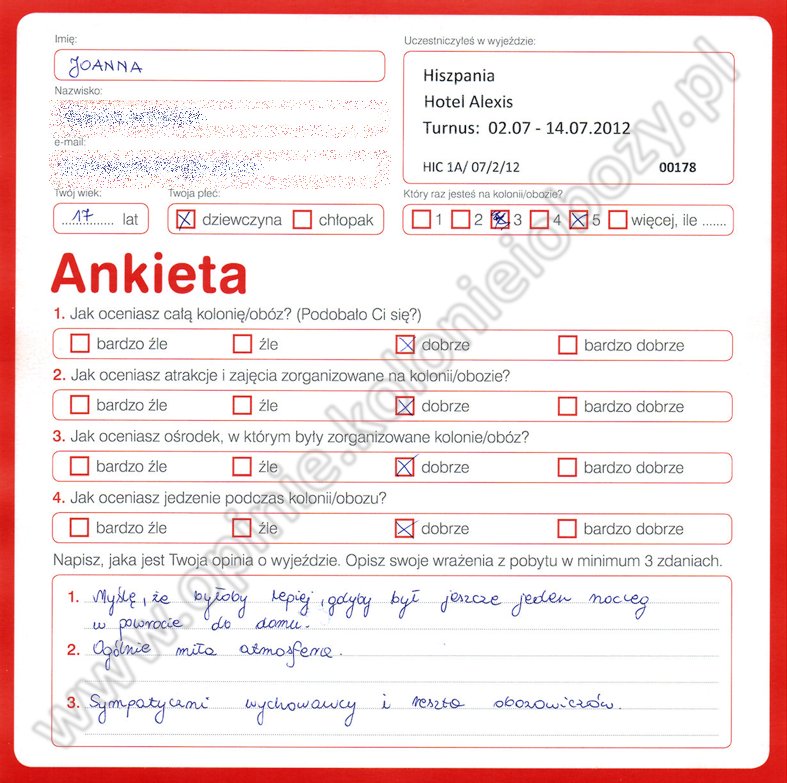 Imię:
Uczestniczyłeś w wyjeździe:
JOANNA
Hiszpania
Nazwisko:
Hotel Alexis
Turnus: 02.07 - 14.07.2012
e-mail:
HIC 1A/ 07/2/12 00178
Twój wiek: Twoja płeć: Który raz jesteś na kolonii/obozie?
17 lat dziewczyna chłopak 1 2 3 4 5 więcej, ile .......
Ankieta
1. Jak oceniasz całą kolonię/obóz? (Podobało Ci się?)
bardzo źle źle dobrze bardzo dobrze
2. Jak oceniasz atrakcje i zajęcia zorganizowane na kolonii/obozie?
bardzo źle źle dobrze bardzo dobrze
3. Jak oceniasz ośrodek, w którym były zorganizowane kolonie/obóz?
bardzo źle źle dobrze bardzo dobrze
4. Jak oceniasz jedzenie podczas kolonii/obozu?
bardzo źle źle dobrze bardzo dobrze
Napisz, jaka jest Twoja opinia o wyjeździe. Opisz swoje wrażenia z pobytu w minimum 3 zdaniach.
1. Myślę, że byłoby lepiej, gdyby był jeszcze jeden nocleg
w powrocie do domu.
2. Ogólnie miła atmosfera.
3. Sympatyczni wychowawcy i reszta obozowiczów.
www.opinie.kolonieiobozy.pl